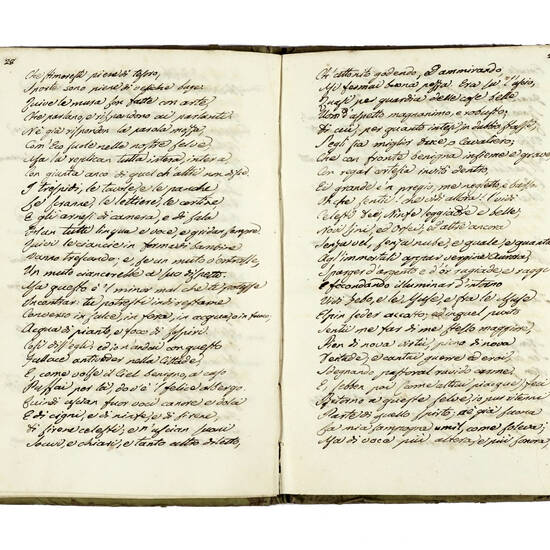 28
Che Amorelli pieni di tesoro,
Sporte sono pieni di vesciche buge
Quive le mura son fatte con arte,
Che parlano, e rispondono ai parlanti
Nè già rispondon la parola mozza,
Com Eco suole nelle nostre selve
Ma la replican tutta intera intera
Con giunta anco di quel ch'altri non disse.
I trespiti, le tavole e le panche
Le scranne, le lettiere, le cortine
E gli arnesi di camera, e di sala
Han tutti lingua e voce, e gridan sempre
Quivi le ciancie in forma di bambine
Vanno trescando; e se un muto v'entrasse,
Un muto ciancerebbe a suo dispetto.
Ma questo è 'l minor mal che ti potesse
Incontrar: tu potresti indi restarne
Converso in salce, in fera, in acqua, o in foco,
Acqua di pianto, e foco di sospiri.
Così diss'egli: ed io n'andai con questo
Fallace antiveder nella Cittade;
E come volse il Ciel benigno, a caso
Passai per là, dov'è 'l felice albergo
Quindi uscian fuor voci canore e dolci
E di cigni, e di ninfe, e di sirene,
Di sirene celesti, e n'uscian suoni
Soavi, e chiari, e tanto altro diletto,
Ch'attonito godendo, ed ammirando,
Mi fermai buona pezza. Era su l'uscio,
Quasi per guardia delle cose belle
Uom d'aspetto magnanimo, e robusto,
Di cui, per quanto intesi, in dubbio stassi,
S'egli sia miglior Duce, o Cavaliero;
Che con fronte benigna insieme e grave
Con regal cortesia invitò dentro,
Ei grande e 'n pregio, me negletto, e basso
O che sentii! che vidi allora! I vidi
Celesti Dee, Ninfe leggiadre e belle,
Novi Lini, ed Orfei, ed altre ancora
Senza vel, senza nube, e quale, e quanta
Agl'immortali appar vergine Aurora,
Sparger d'argento e d'or rugiade e raggi
E fecondando illuminar d'intorno
Vidi Febo, e le Muse, e fra le Muse
Elpin seder accolto; ed in quel punto
Sentii me far di me stesso maggiore,
Pien di nova virtù, pieno di nova
Deitade, e cantai guerre ed eroi,
Sdegnando pastoral ruvido carme.
E sebben poi (come altrui piacque) feci
Ritorno a queste selve, io pur ritenni
Parte di quello spirto; nè già suona
La mia sampogna umil, come soleva;
Ma di voce più altera, e più sonora,